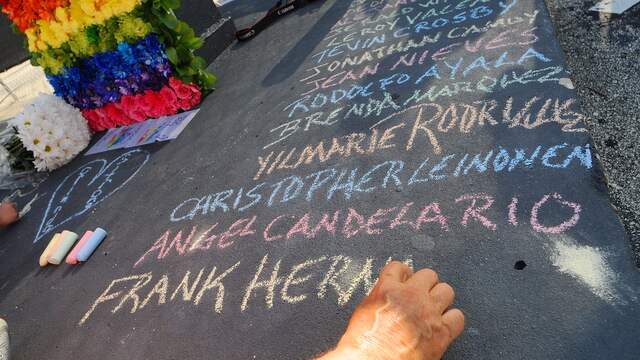 LEROY VALEN
TEVIN CROSBY
JONATHAN CAMUY
JEAN NIEVES
RODOLFO AYALA
BRENDA MARQUEZ
YILMARIE RODRIGUES
CHRISTOPHER LEINONEN
ANGEL CANDELARIO
FRANK HERN